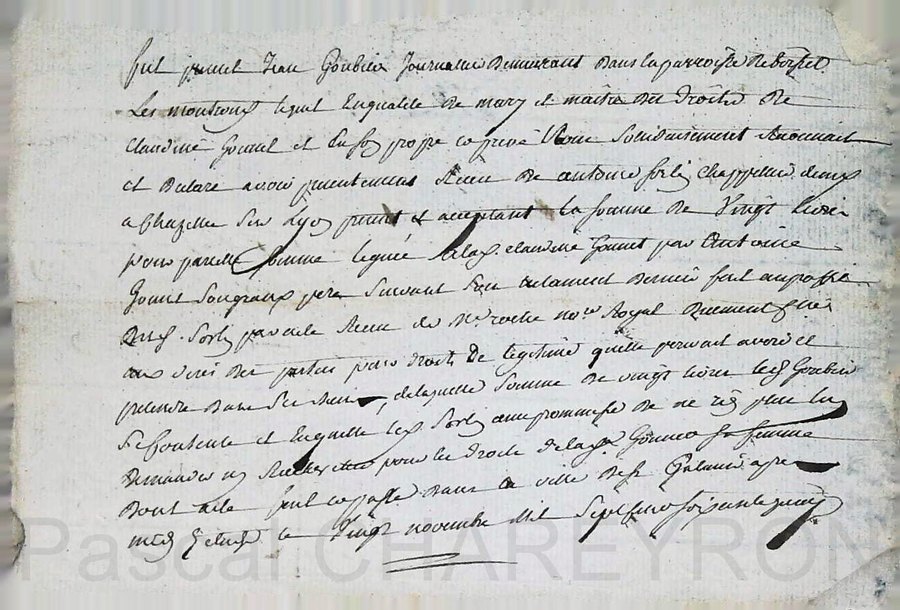 fut present Jean Goubier Journalier Demeurant Dans la parroisse de
Les lequel En qualité De mary et maitre Des Droits De
claudine Gonnet et En son propre et privé solidairement
et Declare avoir presentement Receu De antoine chappellier
a Chazelle sur Lyon present et acceptant La somme de Vingt livres
pour pareille somme leguée a lad. claudine Gonnet par Antoine
Gonnet Son grand pere Suivant Son testament Dernier fait au profit
Dud. par acte Receu de Me roche nore Royal
aux des parties pour droits de legitime quelle pouvoit avoir et
pretendre Dans Ses Biens, de laquelle Somme De vingt livres led Goubier
Se Contente et En quitte led avec promesse De ne Rien plus luy
Demander ny Rechercher pour les droits de lad. Gonnet Sa femme
Dont acte fait et passé Dans la ville De St Galmier apres
midy le Vingt novembre Mil Sept Cent soixante
Pascal CHAREYRON